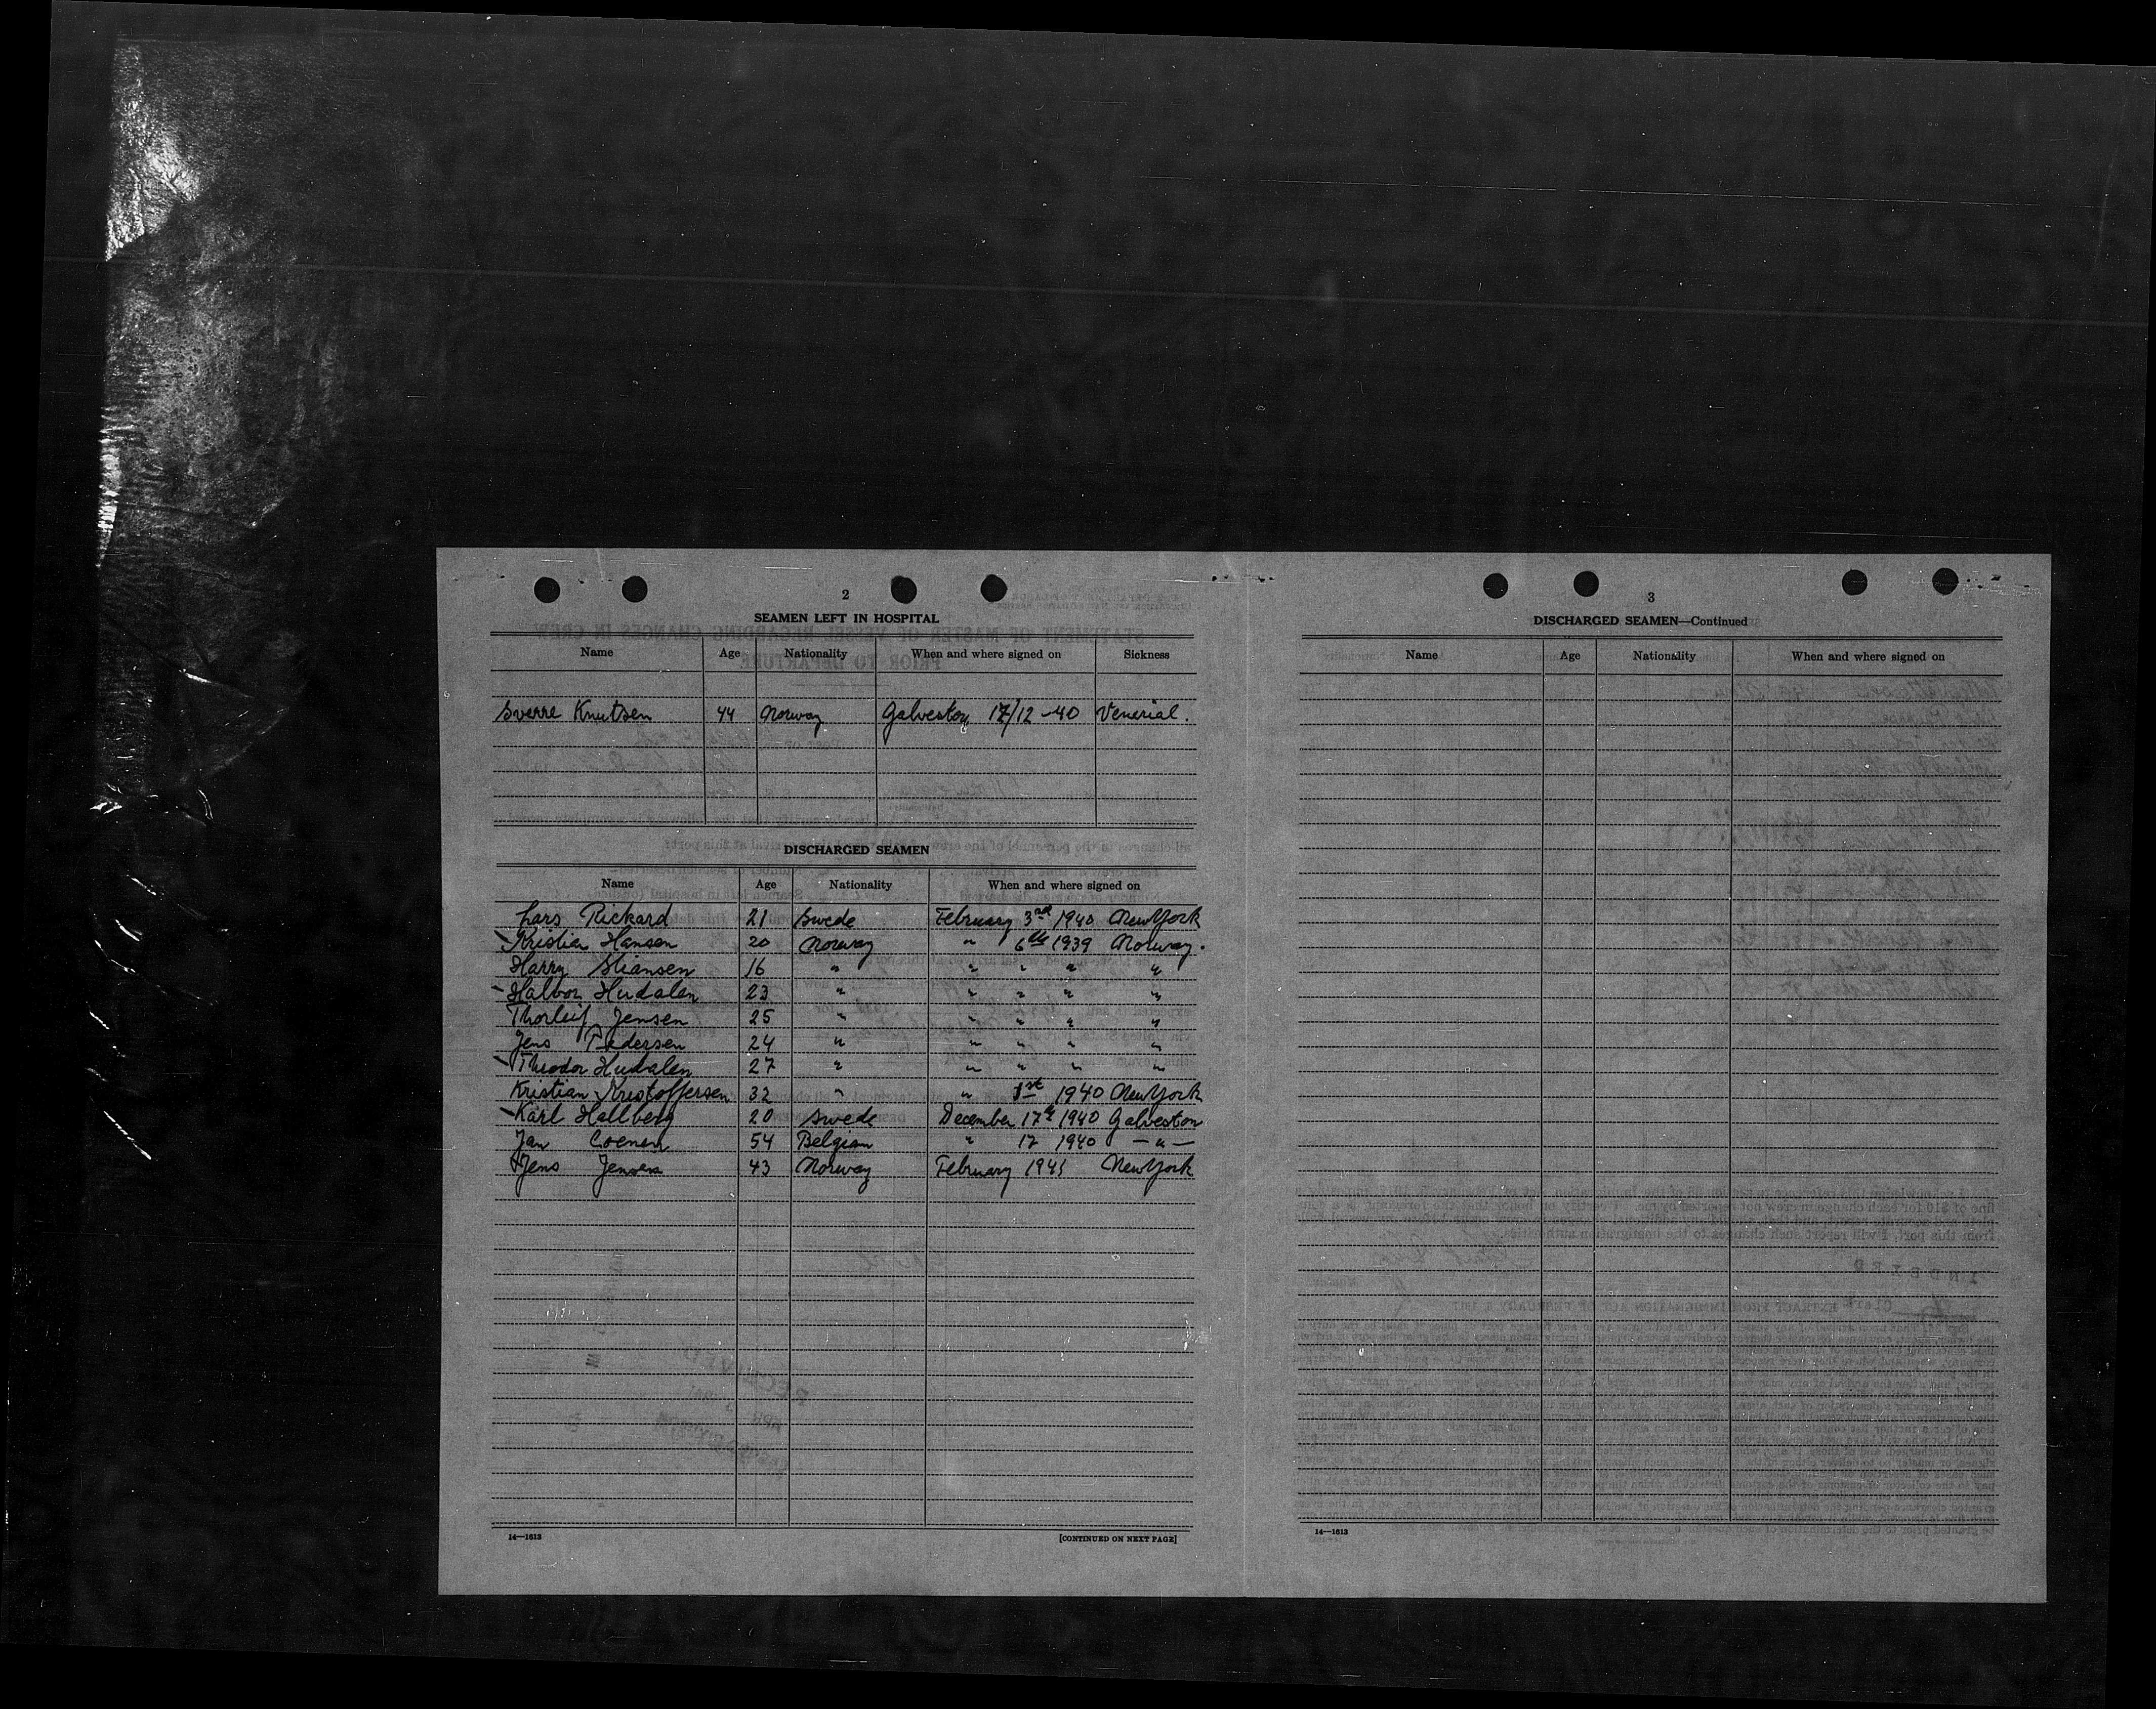 2
SEAMEN LEFT IN HOSPITAL
Name Age Nationality When and where signed on Sickness
Sverre Knutsen 44 Norway Galveston 17/12-40 Venerial.
DISCHARGED SEAMEN
Name Age Nationality When and where signed on
Lars Rickard 21 Swede February 3rd 1940 New York
Kristian Hansen 20 Norway " 6th 1939 Norway.
Harry Stiansen 16 " " " " "
Halvor Hudalen 23 " " " " "
Thorleif Jensen 25 " " " " "
Jens Pedersen 24 " " " " "
Theodor Hudalen 27 " " " " "
Kristian Kristoffersen 32 " " 1st 1940 New York
Karl Hallberg 20 Swede December 17th 1940 Galveston
Jan Coenen 54 Belgian " 17 1940 — " —
Jens Jensen 43 Norway February 1941 New York
14—1613 [CONTINUED ON NEXT PAGE]
3
DISCHARGED SEAMEN—Continued
Name Age Nationality When and where signed on
14—1613